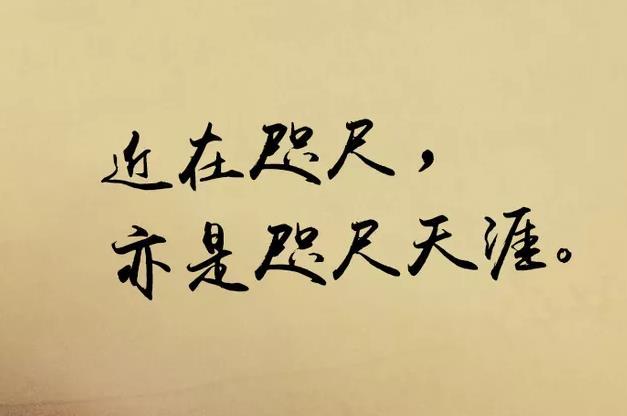 近在咫尺，
亦是咫尺天涯。